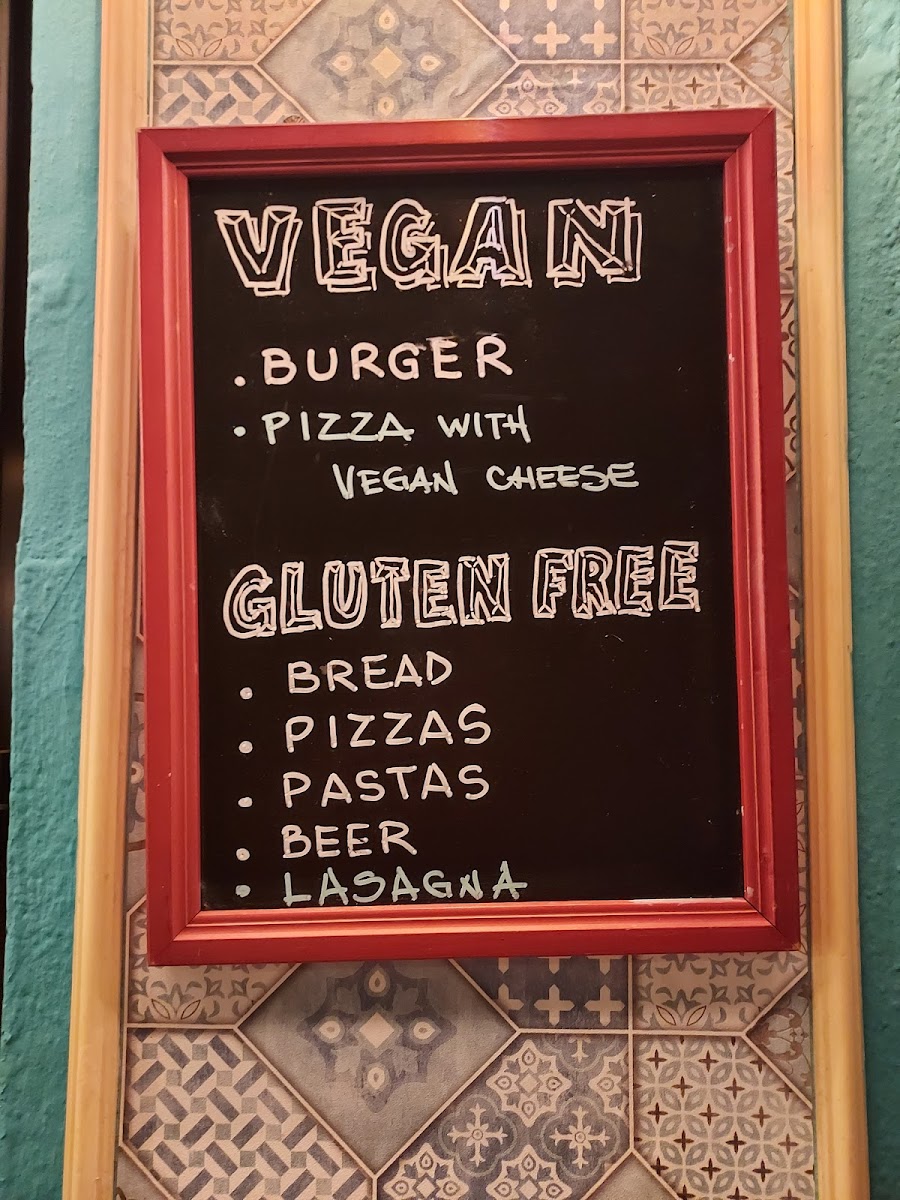 VEGAN
. BURGER
. PIZZA WITH
VEGAN CHEESE
GLUTEN FREE
. BREAD
. PIZZAS
. PASTAS
. BEER
. LASAGNA